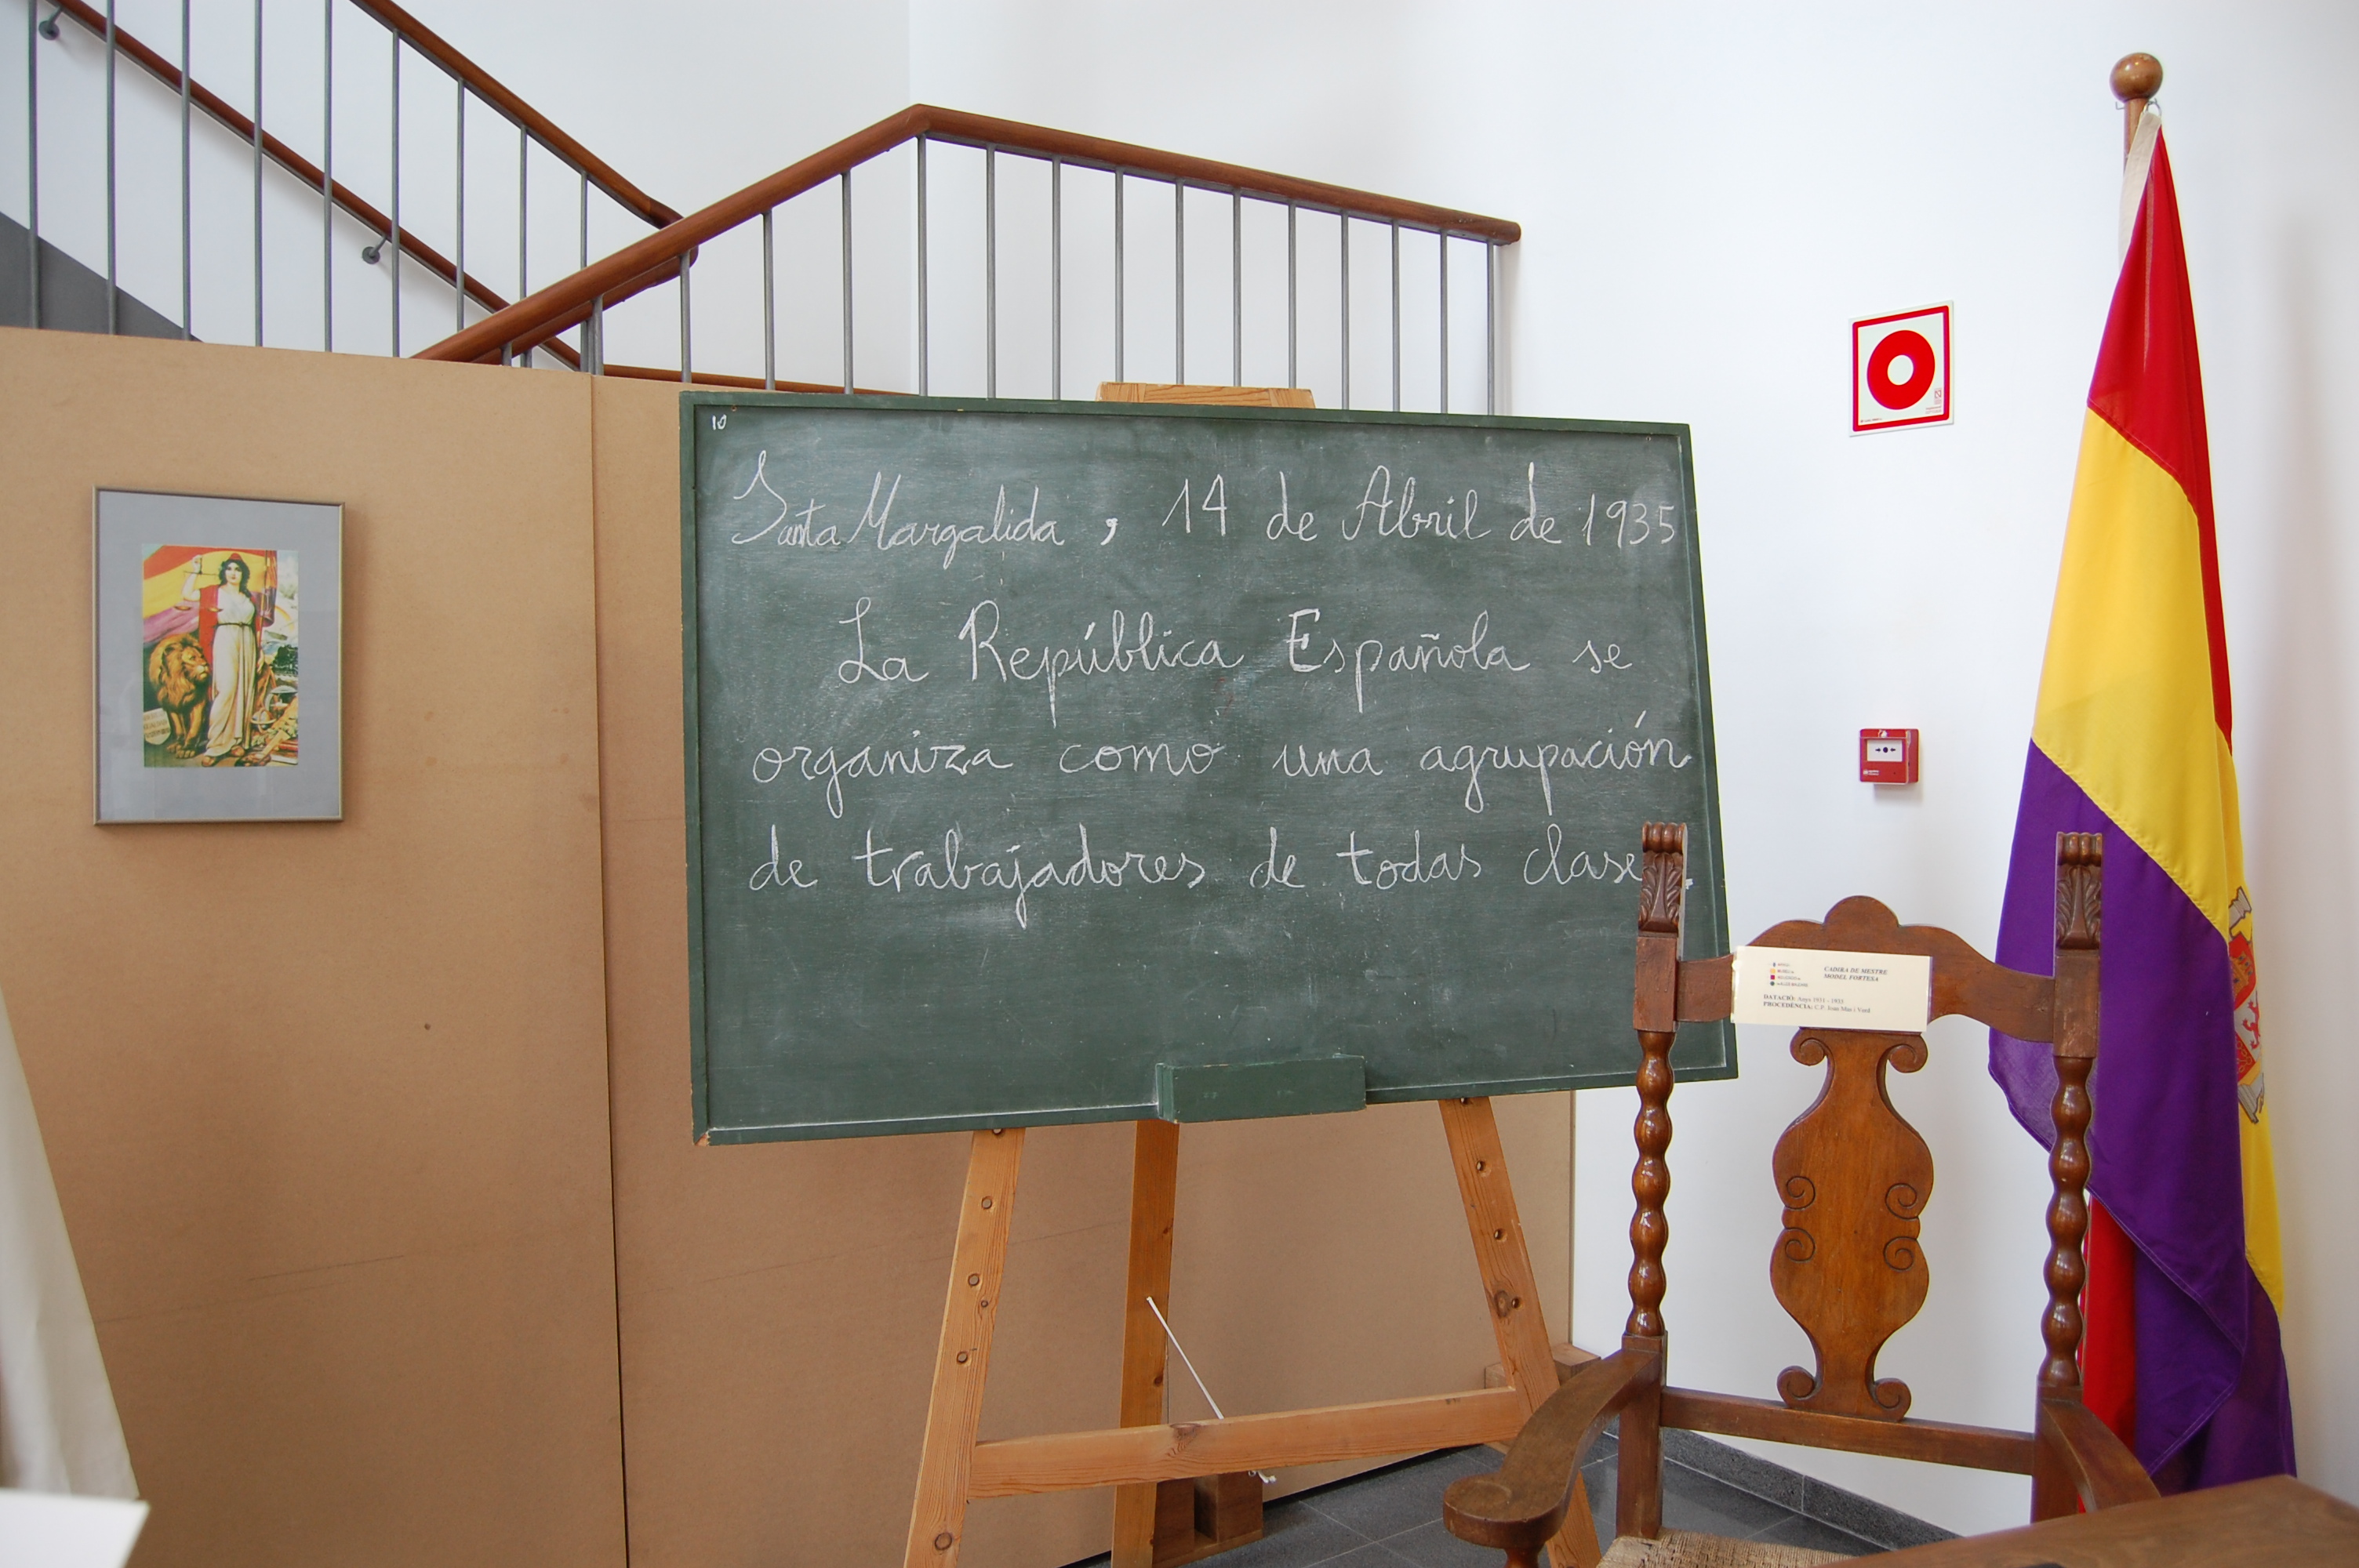 10
Santa Margalida, 14 de Abril de 1935
La República Española se
organiza como una agrupación
de trabajadores de todas clase
CADIRA DE MESTRE
MODEL FORTESA
DATACIÓ: Anys 1931 - 1935
PROCEDÈNCIA: C.P. Joan Mas i Verd